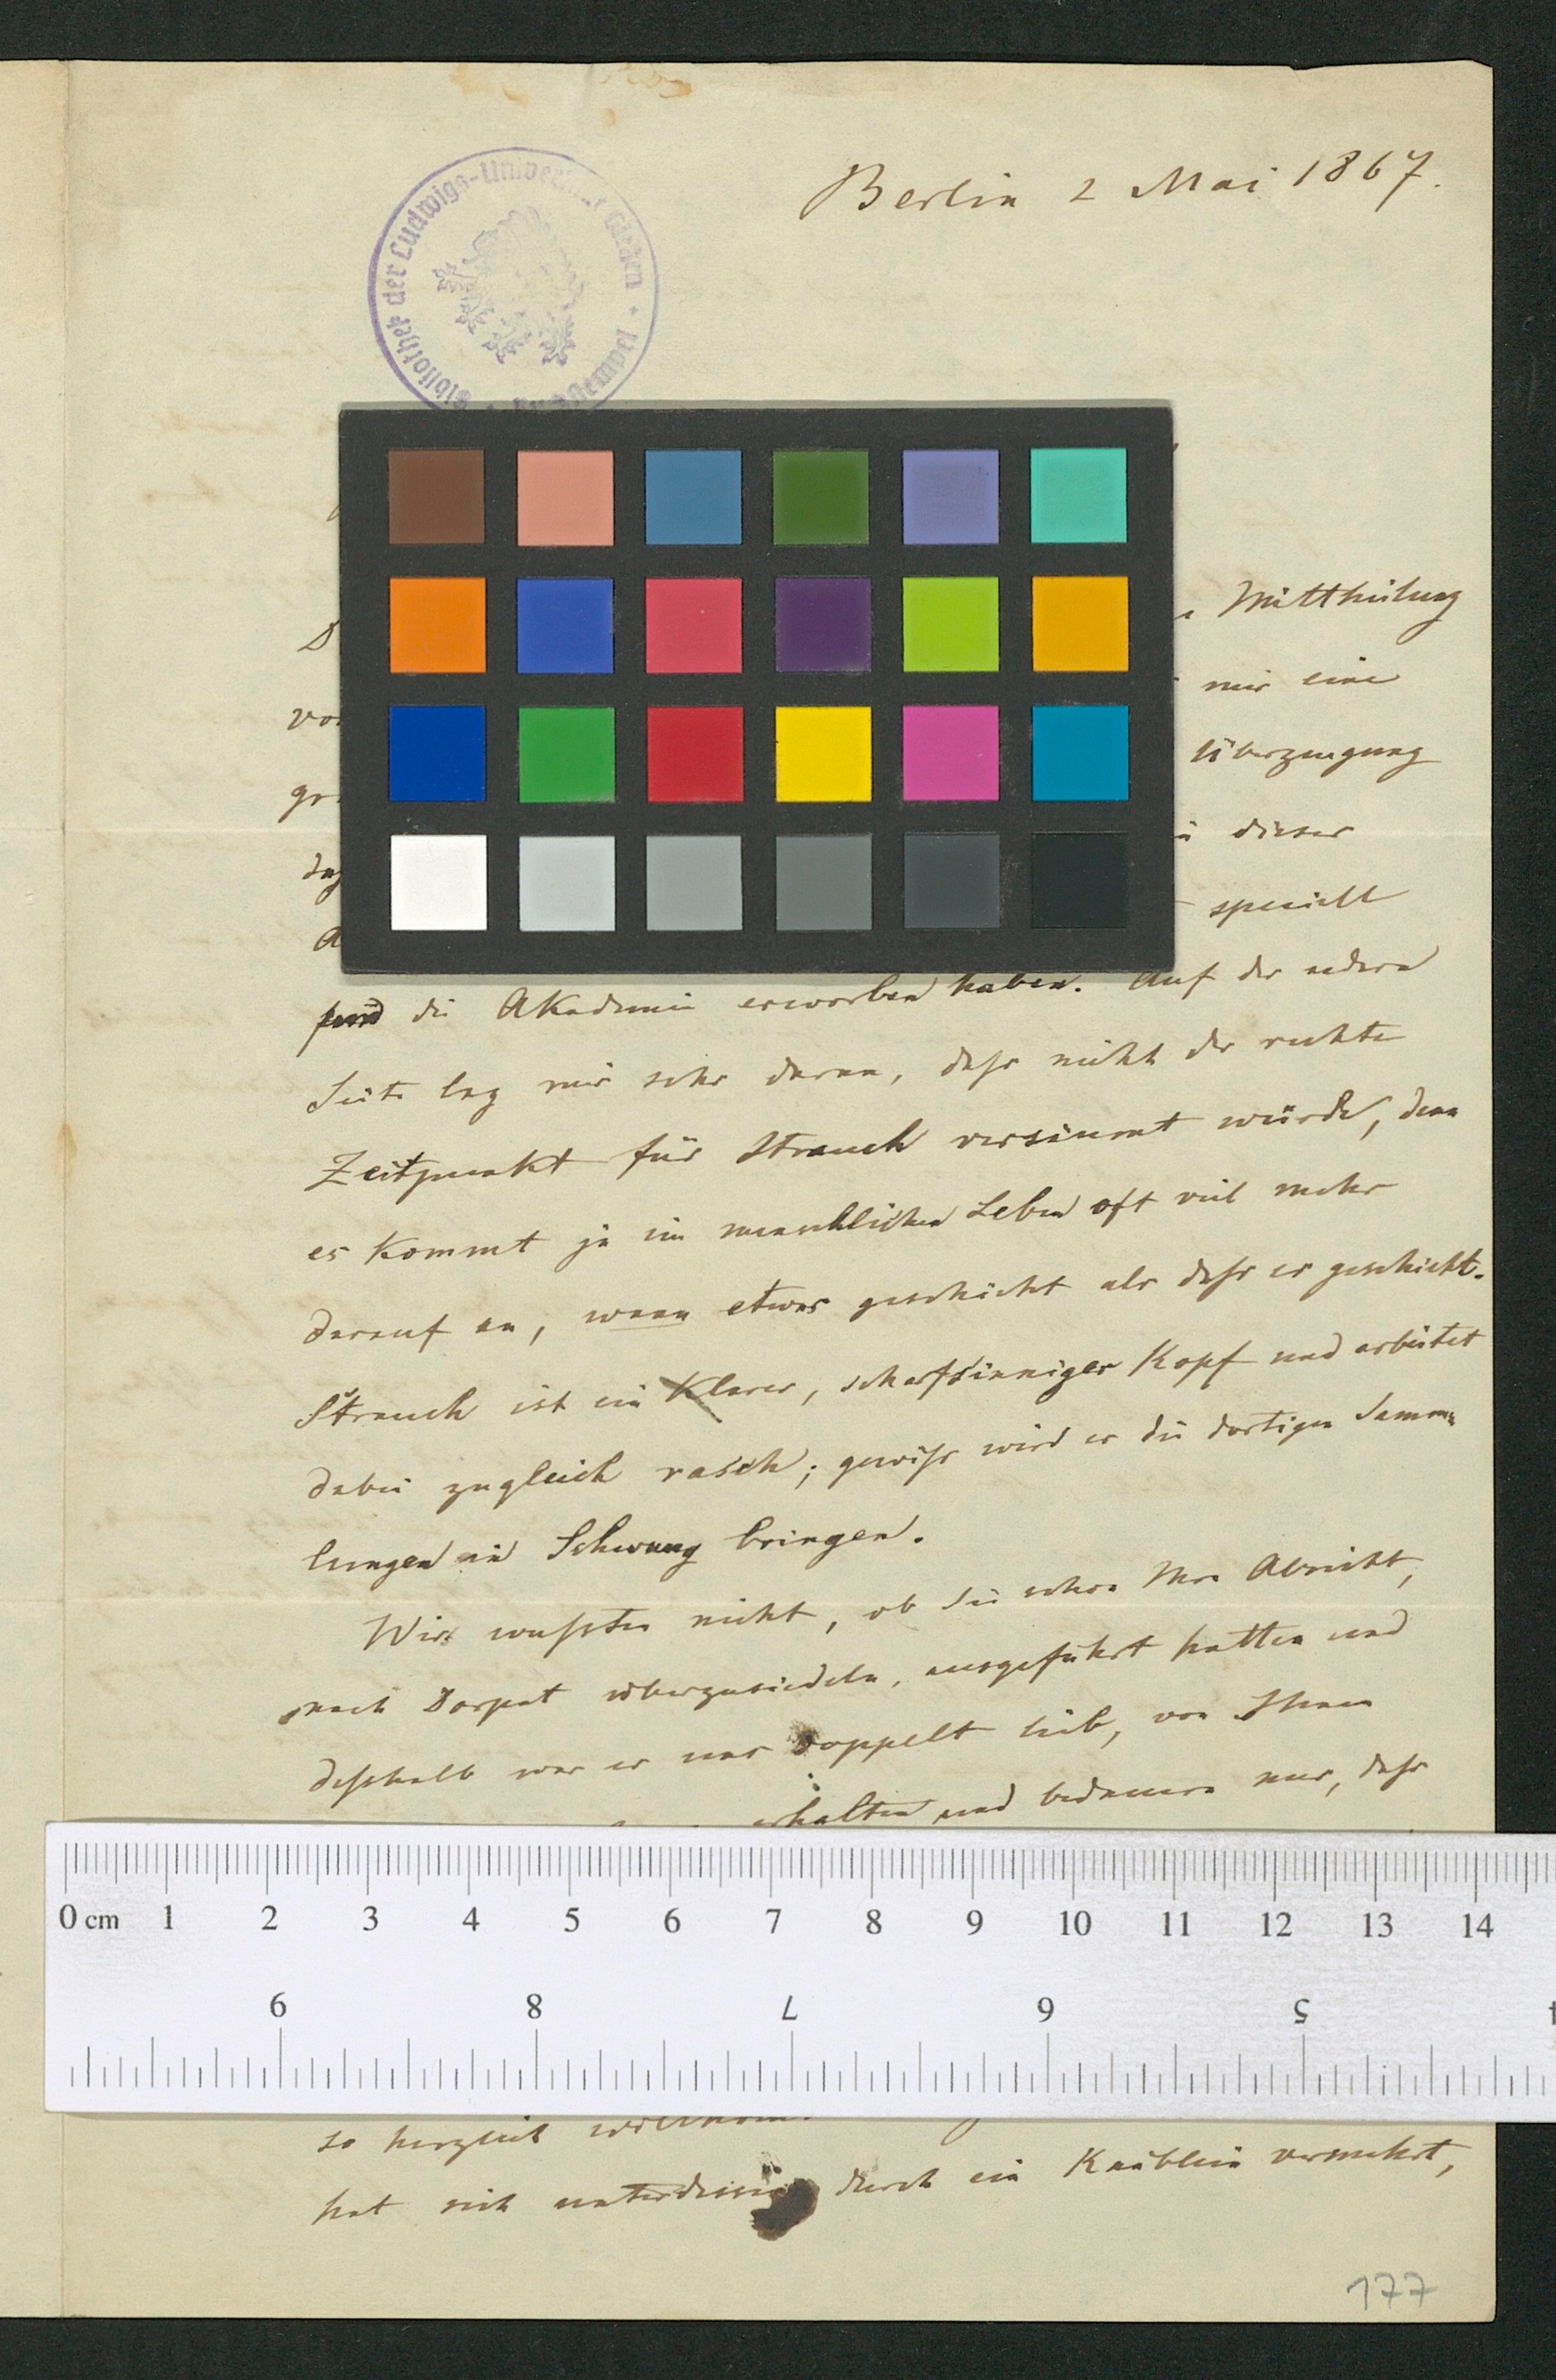 Berlin 2 Mai 1867.
Bibliothek der Ludwigs-Universität Gießen
Mittheilung
mir eine
Überzeugung
dieser
speciell
die Akademie erworben haben. Auf der andern
Seite lag mir sehr daran, dass nicht der rechte
Zeitpunkt für Strauch versäumt würde, denn
es kommt ja im menschlichen Leben oft viel mehr
darauf an, wann etwas geschieht als dass es geschieht.
Strauch ist ein klarer, scharfsinniger Kopf und arbeitet
dabei zugleich rasch; gewiss wird er die dortigen Samm-
lungen in Schwung bringen.
Wir wussten nicht, ob Sie schon Ihre Absicht,
nach Dorpat überzusiedeln, ausgeführt hatten und
desshalb war es uns doppelt lieb, von Ihnen
erhalten und bedauern nur, dass
0 cm 1 2 3 4 5 6 7 8 9 10 11 12 13 14
9 8 7 6 5
so herzlich
hat sich unterdessen durch ein Knäblein vermehrt,
177